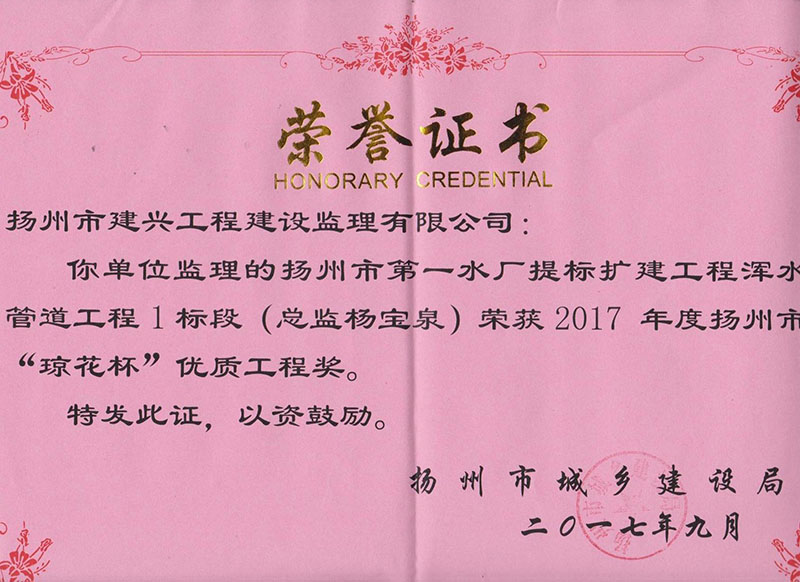 荣誉证书
HONORARY CREDENTIAL
扬州市建兴工程建设监理有限公司：
你单位监理的扬州市第一水厂提标扩建工程浑水
管道工程1标段（总监杨宝泉）荣获2017 年度扬州市
“琼花杯”优质工程奖。
特发此证，以资鼓励。
扬州市城乡建设局
二〇一七年九月